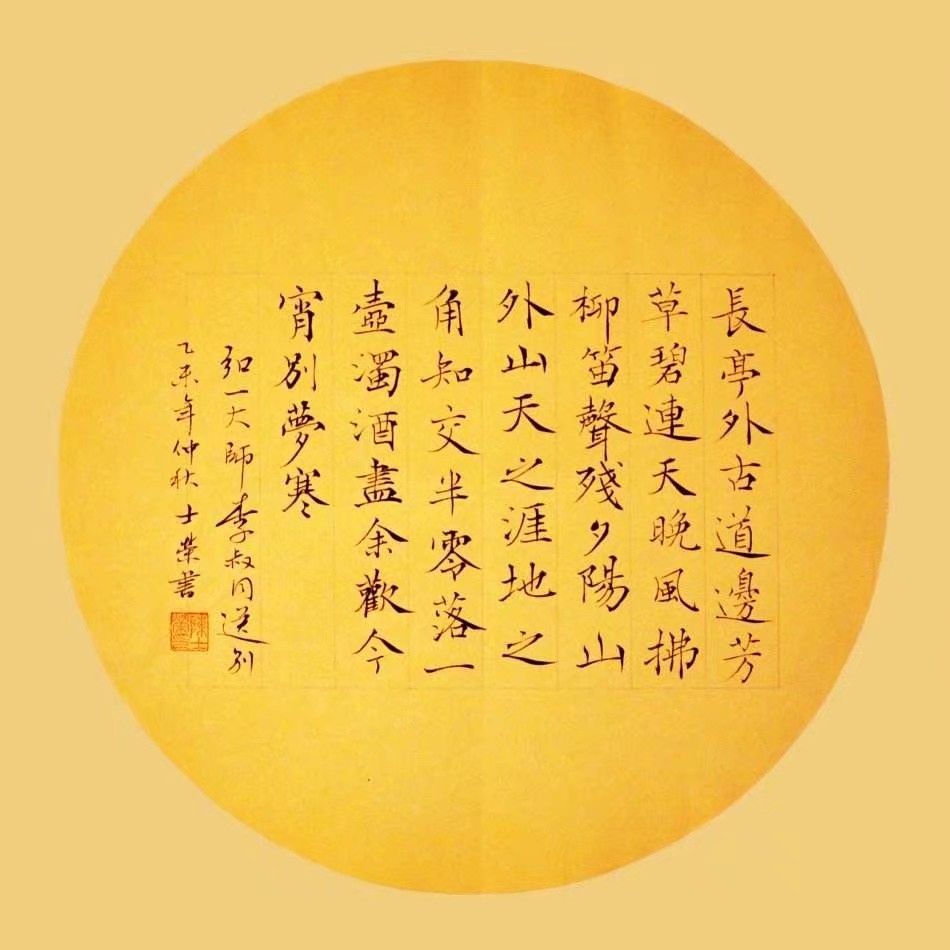 長亭外古道邊芳
草碧連天晚風拂
柳笛聲殘夕陽山
外山天之涯地之
角知交半零落一
壺濁酒盡余歡今
宵別夢寒
弘一大師李叔同送別
乙未年仲秋士榮書